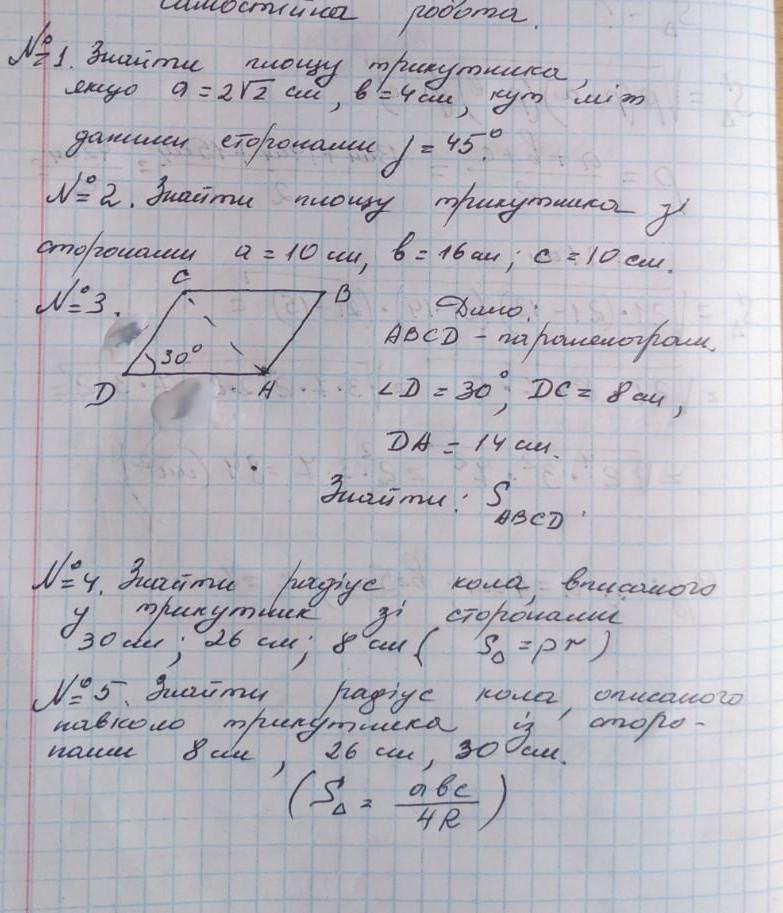 самостійна робота.
№1. Знайти площу трикутника,
якщо a = 2√2 см, в = 4 см, кут між
даними сторонами γ = 45°.
№2. Знайти площу трикутника зі
сторонами a = 10 см, в = 16 см; c = 10 см.
№3.
C B
30°
D A
Дано:
ABCD - паралелограм,
∠D = 30°, DC = 8 см,
DA = 14 см.
Знайти: S ABCD.
№4. Знайти радіус кола, вписаного
у трикутник зі сторонами
30 см; 26 см; 8 см ( S△ = pr )
№5. Знайти радіус кола, описаного
навколо трикутника із сторо-
нами 8 см, 26 см, 30 см.
(S△ = abc/4R)